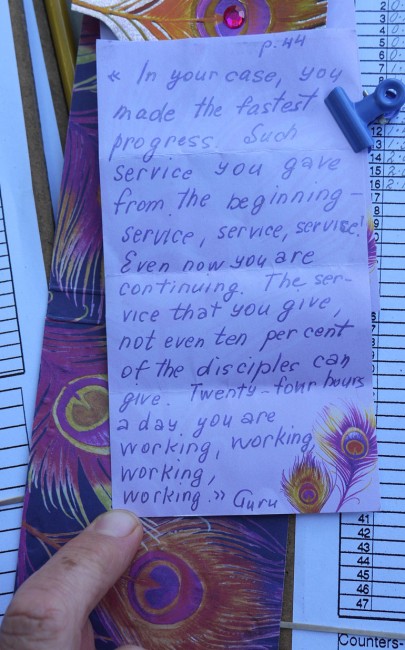 p.44
« In your case, you
made the fastest
progress. Such
service you gave
from the beginning –
service, service, service!
Even now you are
continuing. The ser-
vice that you give,
not even ten per cent
of the disciples can
give. Twenty-four hours
a day you are
working, working,
working,
working.» Guru
2
3
4
5
6
7
12
13
14
15
16
17
41
42
43
44
45
46
47
Counters-